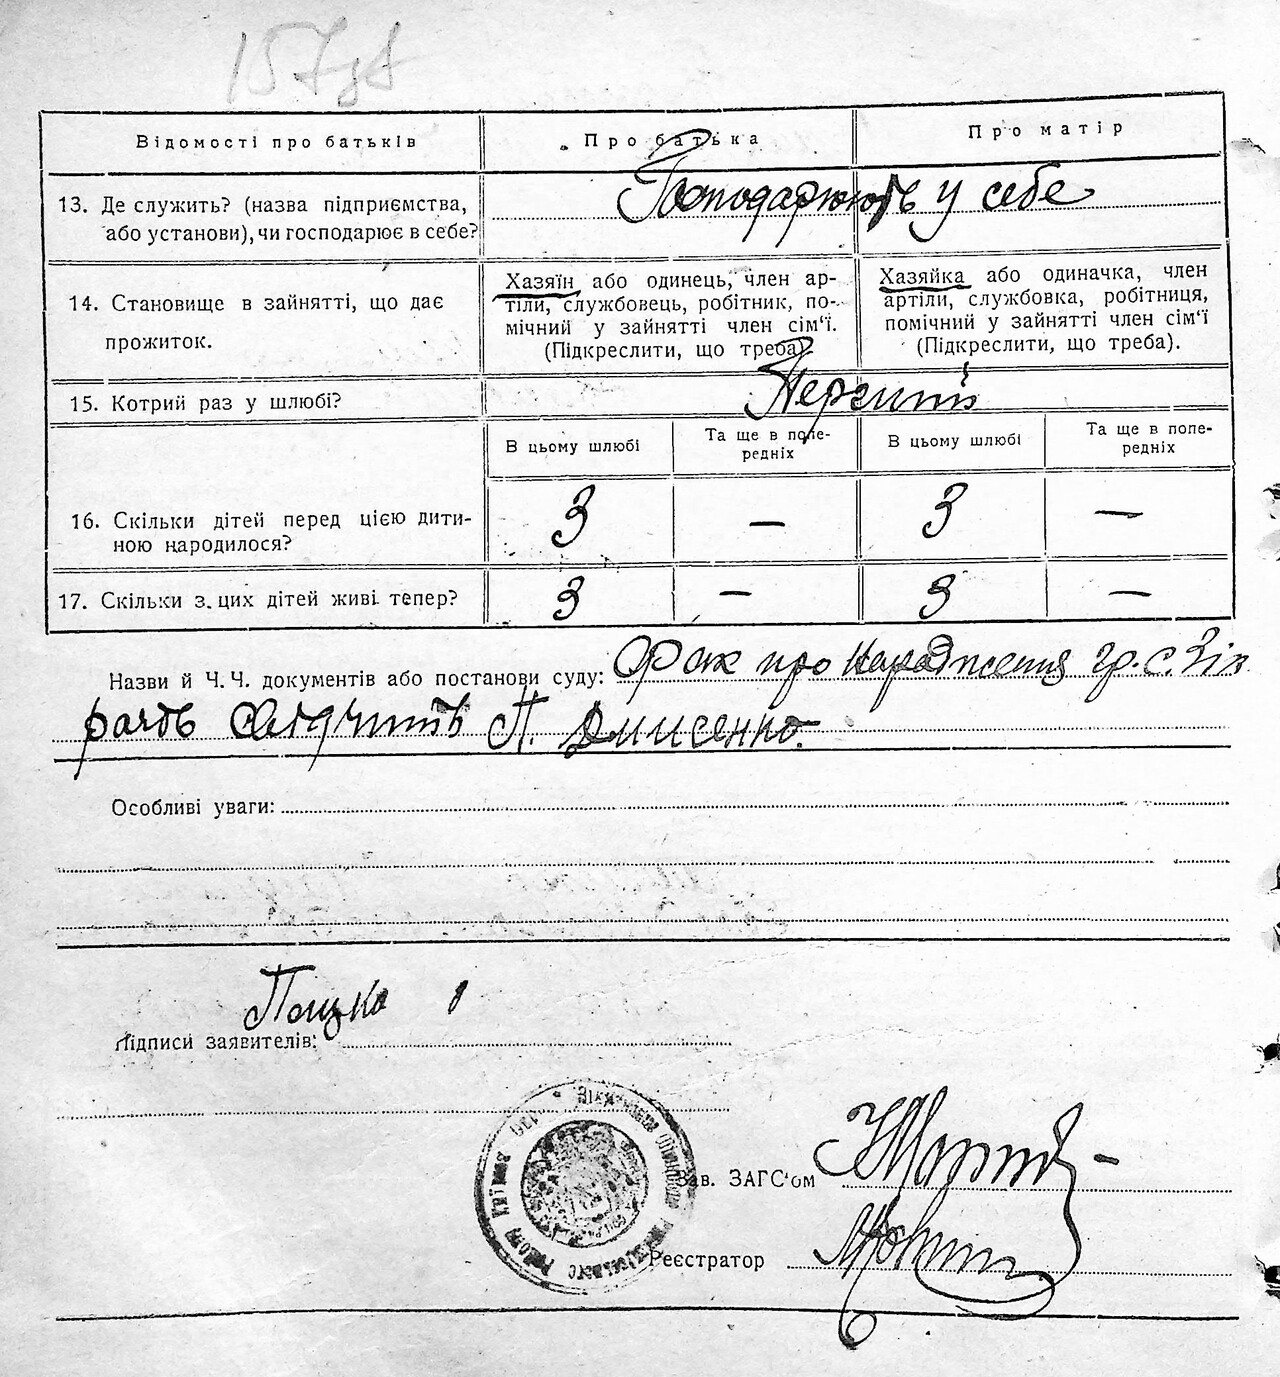 Відомості про батьків
Про батька
Про матір
13. Де служить? (назва підприємства,
або установи), чи господарює в себе?
Господарюють у себе
14. Становище в зайнятті, що дає
прожиток.
Хазяїн або одинець, член ар-
тіли, службовець, робітник, по-
мічний у зайнятті член сім'ї.
(Підкреслити, що треба).
Хазяйка або одиначка, член
артіли, службовка, робітниця,
помічний у зайнятті член сім'ї
(Підкреслити, що треба).
15. Котрий раз у шлюбі?
Перший
В цьому шлюбі
Та ще в попе-
редніх
В цьому шлюбі
Та ще в попе-
редніх
16. Скільки дітей перед цією дити-
ною народилося?
3 — 3 —
17. Скільки з цих дітей живі тепер?
3 — 3 —
Назви й Ч. Ч. документів або постанови суду: Факт про народження гр. с.
свідчить П. Денисенко.
Особливі уваги:
Підписи заявителів:
Зав. ЗАГС'ом
Реєстратор